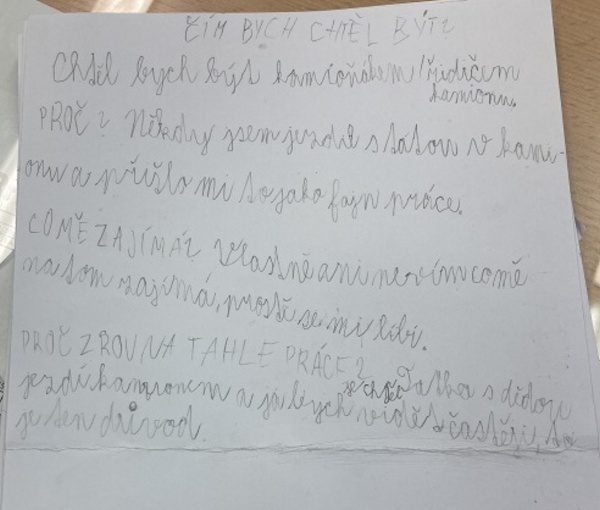 ČÍM BYCH CHTĚL BÝT?
Chtěl bych být kamioňákem/řidičem
kamionu.
PROČ? Někdy jsem jezdil s tátou v kami-
onu a přišlo mi to jako fajn práce.
CO MĚ ZAJÍMÁ? Vlastně ani nevím co mě
na tom zajímá, prostě se mi líbí.
PROČ ZROVNA TAHLE PRÁCE? Taťka s dědou
jezdí kamionem a já bych je chtěl vidět častěji, to
je ten důvod.